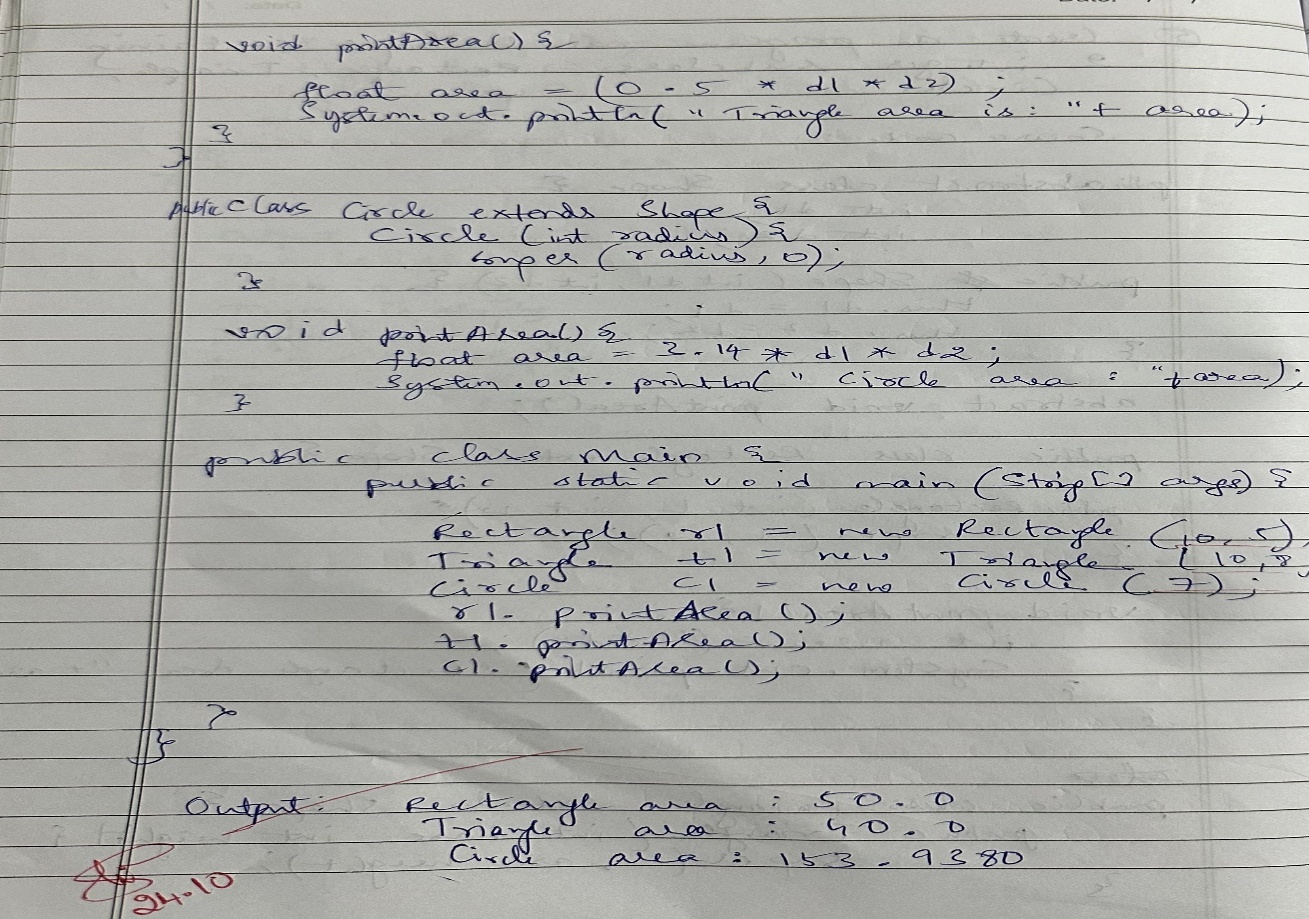 void printArea() {
float area = (0.5 * d1 * d2) ;
System.out.println( " Triangle area is : " + area);
}
}
public class Circle extends Shape {
Circle (int radius) {
super (radius, 0);
}
void printArea() {
float area = 3.14 * d1 * d2 ;
System.out.println( " Circle area : " + area);
}
public class Main {
public static void main (String[] args) {
Rectangle r1 = new Rectangle (10, 5)
Triangle t1 = new Triangle (10, 8
Circle c1 = new Circle (7);
r1. printArea ();
t1. printArea();
c1. printArea ();
}
}
Output : Rectangle area : 50.0
Triangle area : 40.0
Circle area : 153.9380
24.10